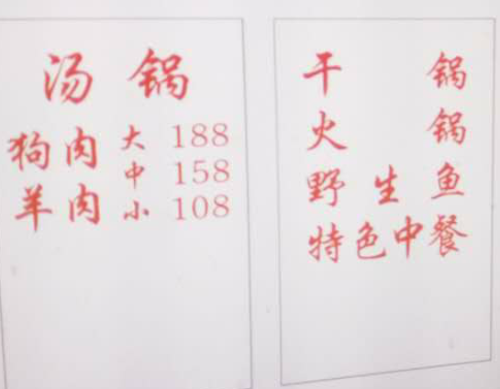 汤锅
狗肉 大 188
中 158
羊肉 小 108
干锅
火锅
野生鱼
特色中餐